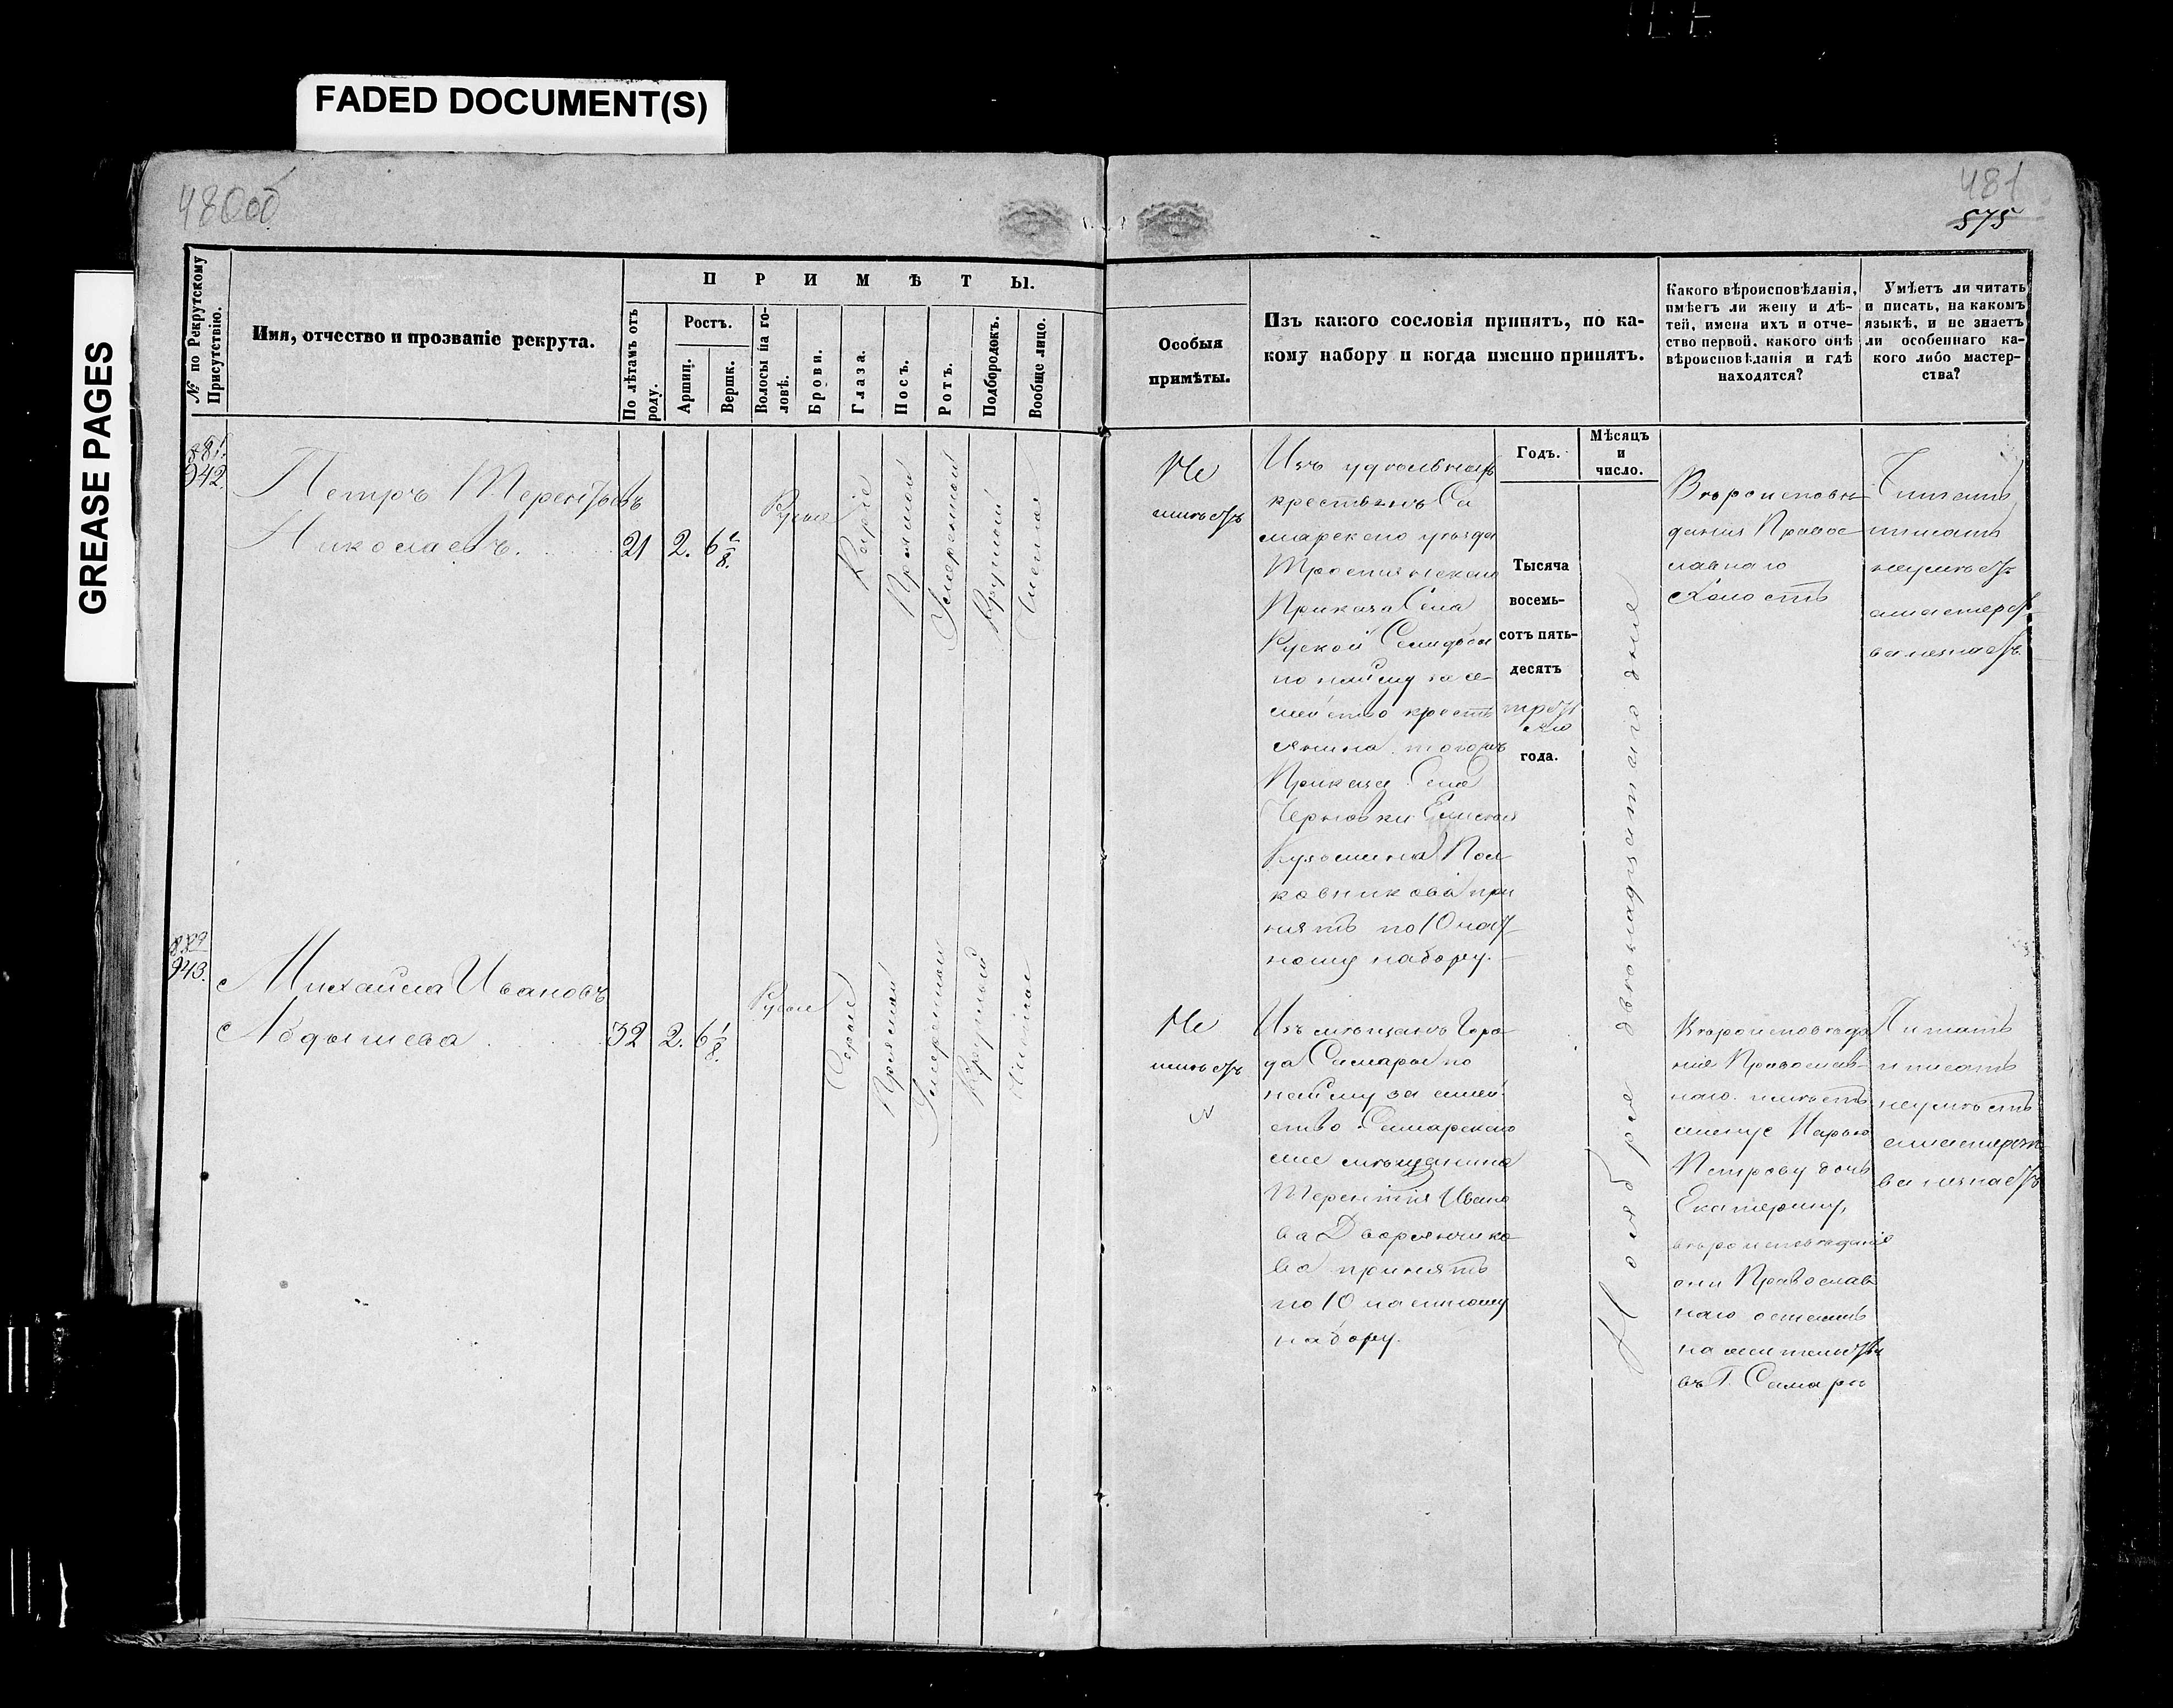 FADED DOCUMENT(S)
GREASE PAGES
480об
481
575
№ по Рекрутскому Присутствію.
Имя, отчество и прозваніе рекрута.
ПРИМѢТЫ.
По лѣтамъ отъ роду.
Ростъ.
Аршин.
Вершк.
Волосы на головѣ.
Брови.
Глаза.
Носъ.
Ротъ.
Подбородокъ.
Вообще лицо.
Особыя
примѣты.
Изъ какого сословія принятъ, по ка-
кому набору и когда именно принятъ.
Какого вѣроисповѣданія,
имѣетъ ли жену и дѣ-
тей, имена ихъ и отче-
ство первой, какого онѣ
вѣроисповѣданія и гдѣ
находятся?
Умѣетъ ли читать
и писать, на какомъ
языкѣ, и не знаетъ
ли особеннаго ка-
кого либо мастер-
ства?
Годъ.
Мѣсяцъ
и
число.
881.
942.
Петръ Терентьевъ
Николаевъ.
21 2. 6 1/8.
Русые
Каріе
Прямой
Умеренный
Круглый
Чистое
Не
имѣетъ
Изъ удѣльныхъ
крестьянъ Са
марскаго уѣзда
Тростянскаго
Приказа Села
Руской Селитьбы
по найму за се
мейство кресть
янина тогожъ
Приказа Села
Черновки Емельяна
Кузьмина Пол
ковникова при
нятъ по 10 част
ному набору.
Тысяча
восемь-
сотъ пять-
десятъ
третьяго
года.
Ноября двенадцатаго дня
Вѣроисповѣ
данія Правос
лавнаго
Холостъ
Читать
писать
неумѣетъ
мастерст
ва незнаетъ
882
943.
Михайла Ивановъ
Абдышева
32 2. 6 1/8.
Русые
Серые
Прямой
Умеренный
Круглый
Чистое
Не
имѣетъ
Изъ мѣщанъ Горо
да Самары по
найму за семей
ство Самарскаго
же мѣщанина
Терентія Ивано
ва Дворянчико
ва принятъ
по 10 частному
набору.
Вѣроисповѣда
нія Православ-
наго имѣетъ
жену Марью
Петрову дочь
Екатерину,
вѣроисповеданія
они Православ
наго остались
на жительствѣ
въ Г. Самарѣ
Читать
и писать
неумѣетъ
мастерст
ва незнаетъ